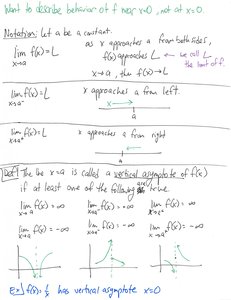 Want to describe behavior of f near x=0, not at x=0.
Notation: Let a be a constant.
lim f(x)=L as x approaches a from both sides,
x→a f(x) approaches L ← we call L
the limit of f.
x→a, then f(x)→L
lim f(x)=L x approaches a from left.
x→a⁻ x→
a
lim f(x)=L x approaches a from right
x→a⁺
a
Def: The line x=a is called a vertical asymptote of f(x)
if at least one of the following are true
lim f(x)=∞ lim f(x)=∞ lim f(x)=∞
x→a x→a⁻ x→a⁺
lim f(x)=-∞ lim f(x)=-∞ lim f(x)=-∞
x→a x→a⁻ x→a⁺
Ex) f(x)=1/x has vertical asymptote x=0